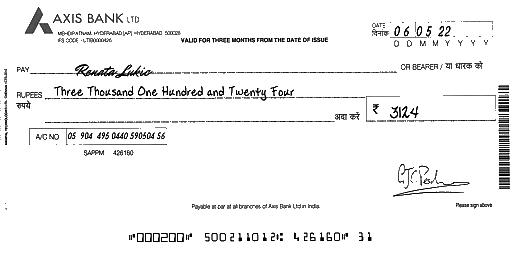 AXIS BANK LTD
MEHDIPATNAM, HYDERABAD [AP] HYDERABAD 500028
IFS CODE - UTIB0000426
VALID FOR THREE MONTHS FROM THE DATE OF ISSUE
DATE दिनांक 06 05 22
D D M M Y Y Y Y
PAY Renata Lukic OR BEARER / या धारक को
RUPEES रुपये Three Thousand One Hundred and Twenty Four
अदा करें ₹ 3124
A/C NO 05 904 495 0440 590504 56
SAPPM 426160
Payable at par at all branches of Axis Bank Ltd in India.
Please sign above
⑈000200⑈ 500211012⑆ 426160⑈ 31